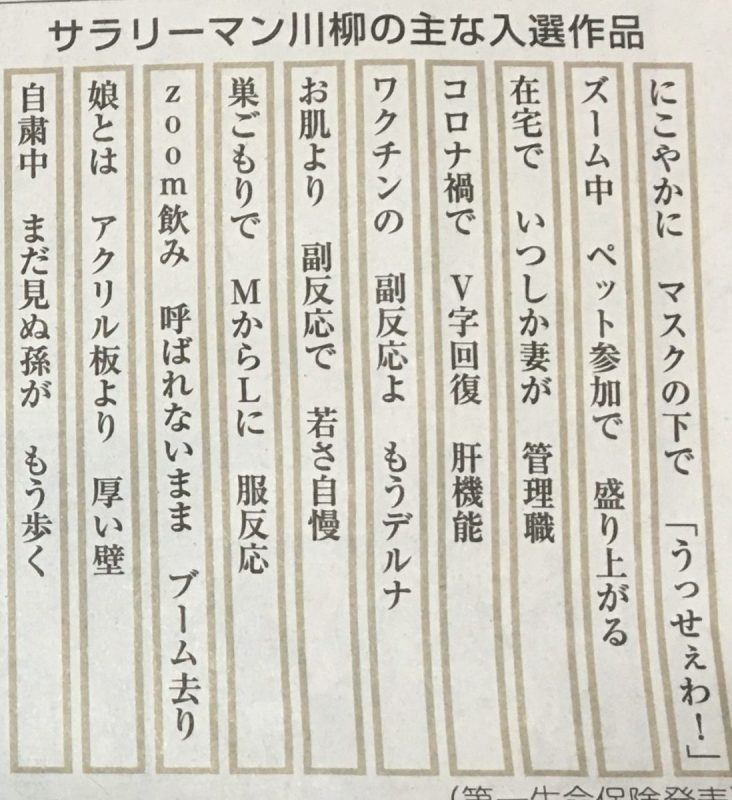 サラリーマン川柳の主な入選作品
にこやかに マスクの下で 「うっせぇわ！」
ズーム中 ペット参加で 盛り上がる
在宅で いつしか妻が 管理職
コロナ禍で V字回復 肝機能
ワクチンの 副反応よ もうデルナ
お肌より 副反応で 若さ自慢
巣ごもりで MからLに 服反応
zoom飲み 呼ばれないまま ブーム去り
娘とは アクリル板より 厚い壁
自粛中 まだ見ぬ孫が もう歩く
(第一生命保険発表)